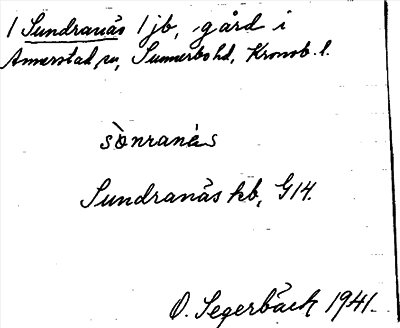 1 Sundranäs 1 jb, gård i
Annerstad sn, Sunnerbo hd, Kronob. l.
sònranä́s
Sundranäs kb, G14.
O. Segerbäck 1941.